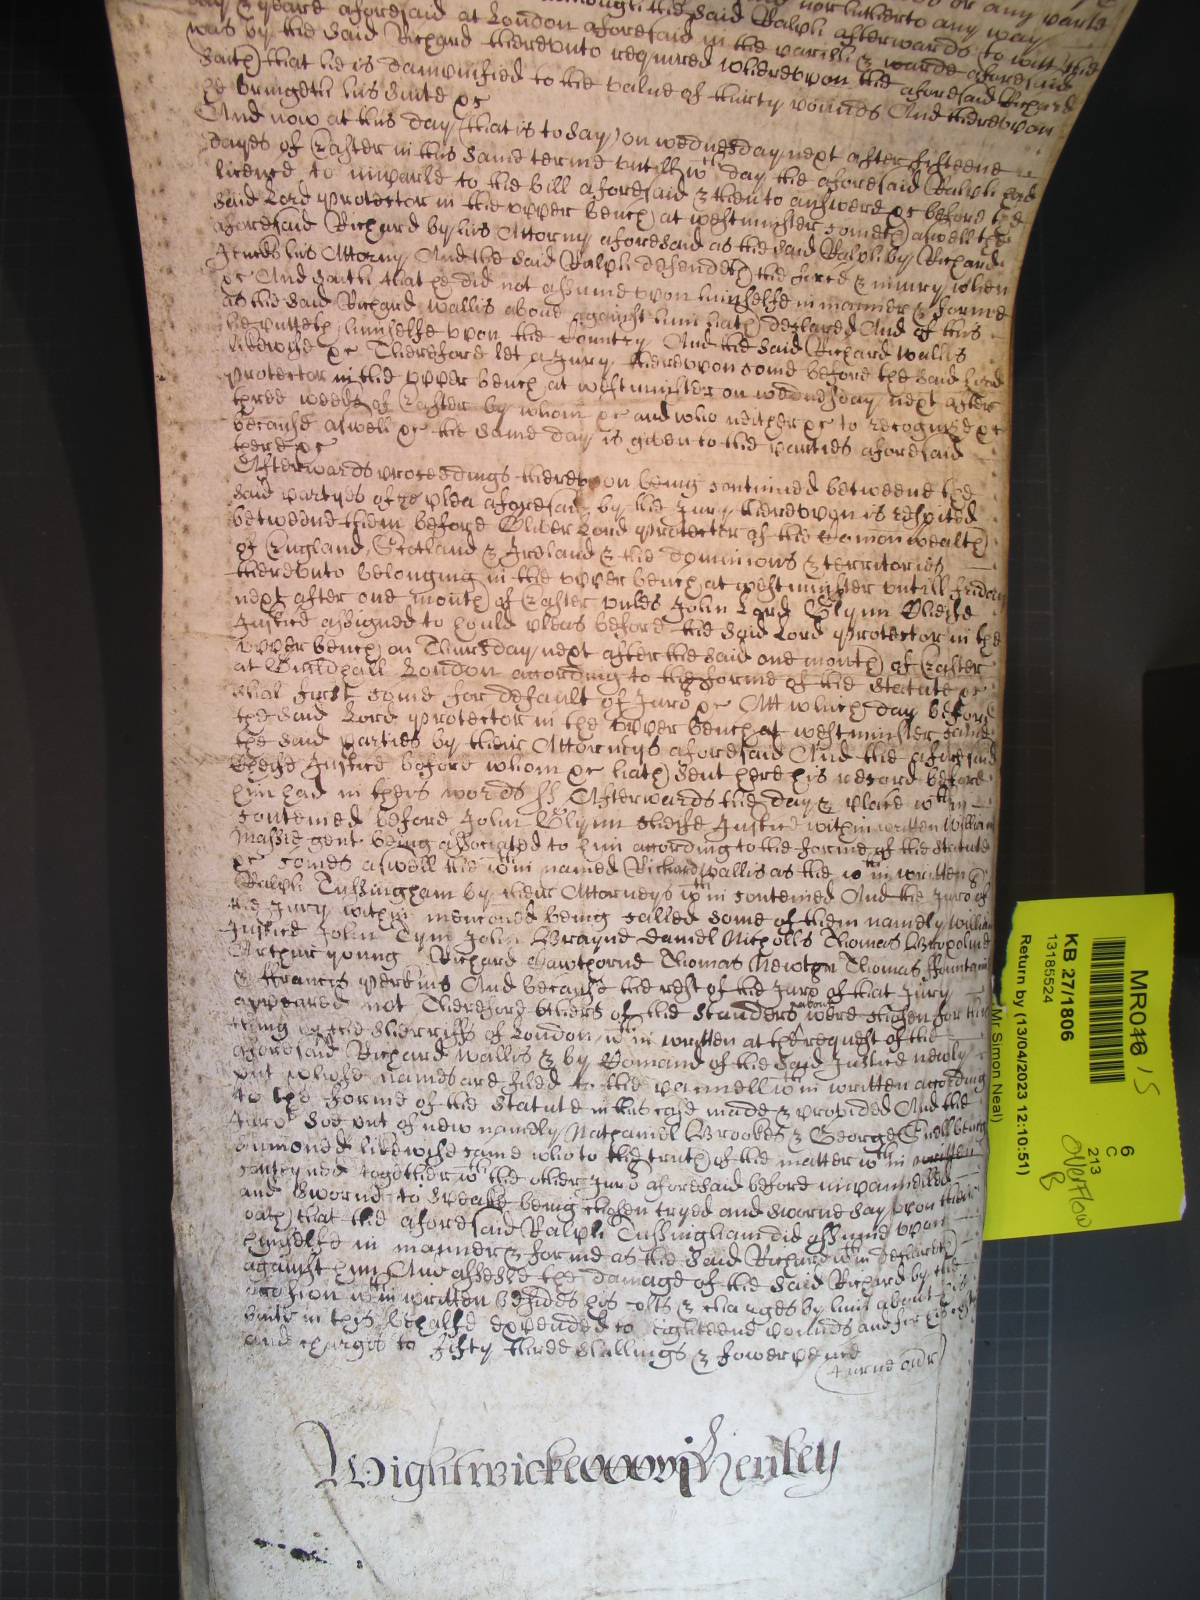 day & yeare aforesaid at London aforesaid in the parish & warde aforesaid
was by the said Richard thereunto required whereupon the aforesaid Richard
saith that he is dampnified to the value of thirty pounds And thereupon
he bringeth his suite &c
And now at this day (that is to say) on wednesday next after fifteene
dayes of Easter in this same terme untill wch day the aforesaid Ralph had
licence to imparle to the bill aforesaid & then to answere &c before the
said Lord Protector in the upper bench at westminster cometh aswell the
aforesaid Richard by his Attorny aforesaid as the said Ralph by Richard
his Attorny And the said Ralph defendeth the force & iniury when
&c And saith that he did not assume upon himselfe in manner & forme
as the said Richard wallis above against him hath declared And of this
he putteth himselfe upon the Country And the said Richard wallis
likewise &c Therefore let a Jury thereupon come before the said Lord
Protector in the upper bench at westminster on wednesday next after
three weeks of Easter by whom &c and who neither &c to recognise &c
because aswell &c the same day is given to the parties aforesaid
there &c
Afterwards proceedings thereupon being continued betweene the
said partyes of the plea aforesaid by the Jury thereupon is respited
betweene them before Oliver Lord Protector of the Comonwealth
of England Scotland & Ireland & the dominions & territories
thereunto belonging in the upper bench at westminster untill friday
next after one month of Easter unles John Lord Glynn Cheife
Justice assigned to hould pleas before the said Lord Protector in the
upper bench on Thursday next after the said one month of Easter
at Guildhall London according to the forme of the Statute &c
shal first come for default of Juro &c Att which day before
the said Lord Protector in the upper bench at westminster came
the said parties by their Attorneys aforesaid And the aforesaid
Cheife Justice before whom &c hath sent here his record before
him had in theis words ss Afterwards the day & place wthin
contened before John Glynn cheife Justice within written William
Massie gent being associated to him according to the forme of the statute
&c comes aswell the wthin named Richard Wallis as the wthin written
Ralph Tussingham by their Attorneys wthin contened And the Juro of
the Jury within mencoed being called some of them namely William
Justice John Tym John Brayne Daniel Nicholls Thomas Bropoline
Arthur young Richard Hawthorne Thomas Newton Thomas ffountain
& ffrancis Perkins And because the rest of the Juro of that Jury
appeared not Therefore others of the standers about were chosen for this
thing by the Sherriffs of London wthin written at the request of the
aforesaid Richard Wallis & by Comand of the said Justice newly
put whose names are filed to the pannell wthin written according
to the forme of the statute in this case made & provided And the
Juro soe put of new namely Nathaniel Brookes & George Snell being
sumoned likewise came who to the truth of the matter wthin
conteyned together wth the other Juro aforesaid before impannelled
and sworne to speake being chosen tryed and sworne say upon their
oath that the aforesaid Ralph Tussingham did assume upon
himselfe in manner & forme as the said Richard wthin declareth
against him And assesse the damage of the said Richard by the
occasion wthin written besides his costs & charges by him about his
suite in this behalfe expended to eighteene pounds and for his costs
and charges to fifty three shillings & fower pence
Wightwicke Henley
MR016 15
KB 27/1806
13185524
Return by (13/04/2023 12:10:51)
Mr Simon Neal)
6
C
213
overflow
B